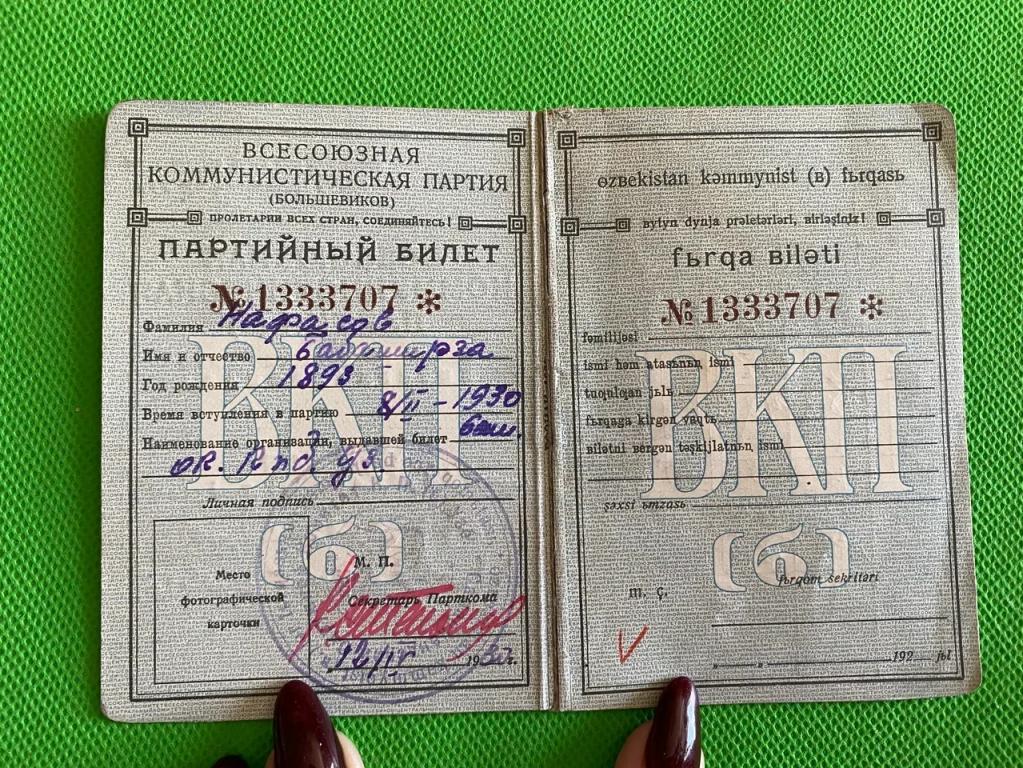 ВСЕСОЮЗНАЯ
КОММУНИСТИЧЕСКАЯ ПАРТИЯ
(БОЛЬШЕВИКОВ)
ПРОЛЕТАРИИ ВСЕХ СТРАН, СОЕДИНЯЙТЕСЬ!
ПАРТИЙНЫЙ БИЛЕТ
№ 1333707 *
Фамилия Нафасов
Имя и отчество
Год рождения 1893
Время вступления в партию 8/II - 1930
Наименование организации, выдавшей билет
ок.
Личная подпись
Место
фотографической
карточки
М. П.
Секретарь Парткома
12/IV 193 г.
ɵzвekistan kəmmynist (в) fьrqasь
Bytyn dynja prəletərləri, birləşiniz!
fьrqa вiləti
№ 1333707 *
fəmilijəsi
ismi həm atasьnьꞑ ismi
tuƣulƣan jьlь
fьrqaga kirgən vaqtь
вilətni вergən təşkilatnьꞑ ismi
şəxsi ьmzasь
ВКП
(б)
ВКП
(б)
fьrqom sekritəri
m. ç.
„ „ 192 jьl